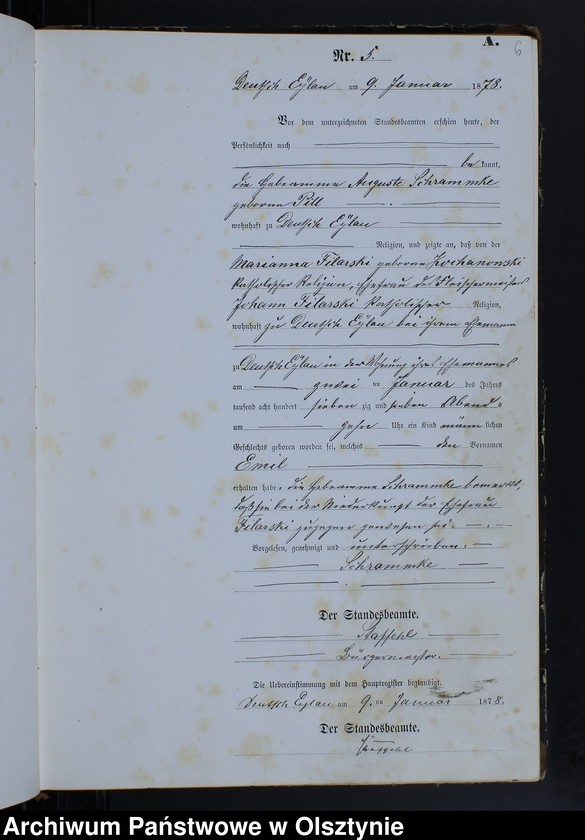 A.
6
Nr. 5.
Deutsch Eylau am 9. Januar 1878.
Vor dem unterzeichneten Standesbeamten erschien heute, der
Persönlichkeit nach
be kannt,
die Hebeamme Auguste Schrammke
geborne Pill
wohnhaft zu Deutsch Eylau
Religion, und zeigte an, daß von der
Marianna Filarski geborene Kochanowski
katholischer Religion, Ehefrau des Fleischermeisters
Johann Filarski katholischer Religion,
wohnhaft zu Deutsch Eylau bei ihrem Ehemann
zu Deutsch Eylau in der Wohnung ihres Ehemannes
am zwei ten Januar des Jahres
tausend acht hundert sieben zig und sieben Abends
um zehn Uhr ein Kind männ lichen
Geschlechts geboren worden sei, welches den Vornamen
Emil
erhalten habe. Die Hebeamme Schrammke bemerkt,
daß sie bei der Niederkunft der Ehefrau
Filarski zugegen gewesen sei.
Vorgelesen, genehmigt und unterschrieben.
Schrammke
Der Standesbeamte.
Staffehl
Bürgermeister.
Die Uebereinstimmung mit dem Hauptregister beglaubigt.
Deutsch Eylau am 9. ten Januar 1878.
Der Standesbeamte.
Archiwum Państwowe w Olsztynie